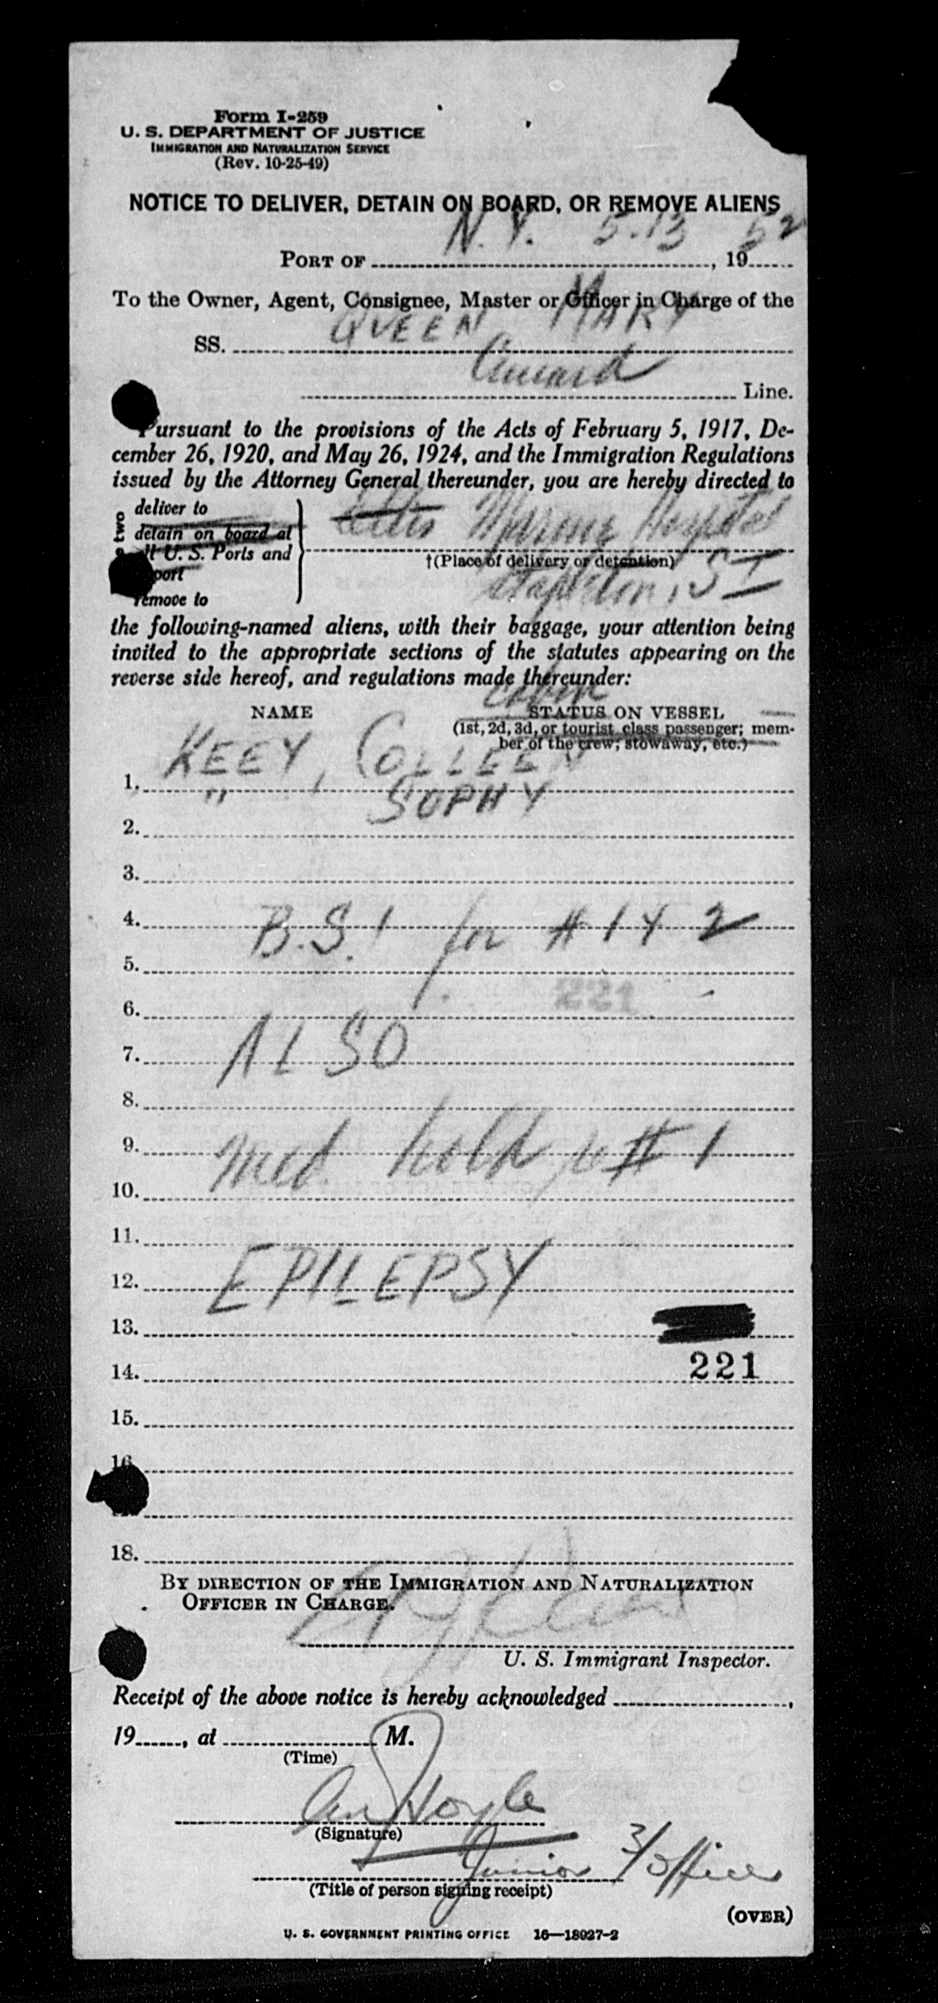 Form I-259
U. S. DEPARTMENT OF JUSTICE
IMMIGRATION AND NATURALIZATION SERVICE
(Rev. 10-25-49)
NOTICE TO DELIVER, DETAIN ON BOARD, OR REMOVE ALIENS
PORT OF N.Y. 5.13, 1952
To the Owner, Agent, Consignee, Master or Officer in Charge of the
SS. QUEEN MARY
Cunard Line.
Pursuant to the provisions of the Acts of February 5, 1917, De-
cember 26, 1920, and May 26, 1924, and the Immigration Regulations
issued by the Attorney General thereunder, you are hereby directed to
deliver to
detain on board at
all U. S. Ports and
port
remove to
two
Ellis Marine Hospital
†(Place of delivery or detention)
Stapleton, SI
the following-named aliens, with their baggage, your attention being
invited to the appropriate sections of the statutes appearing on the
reverse side hereof, and regulations made thereunder:
cabin
NAME STATUS ON VESSEL
(1st, 2d, 3d, or tourist class passenger; mem-
ber of the crew; stowaway, etc.)
1. KEEY, COLLEEN
2. " SOPHY
3.
4. B.S.I for # 1 Y 2
5.
6. 221
7. ALSO
8.
9. med. hold # 1
10.
11.
12. EPILEPSY
13.
14. 221
15.
16.
18.
BY DIRECTION OF THE IMMIGRATION AND NATURALIZATION
OFFICER IN CHARGE.
U. S. Immigrant Inspector.
Receipt of the above notice is hereby acknowledged ,
19 , at M.
(Time)
Hoyle
(Signature)
Junior 3/Officer
(Title of person signing receipt)
(OVER)
U. S. GOVERNMENT PRINTING OFFICE 16—18027-2